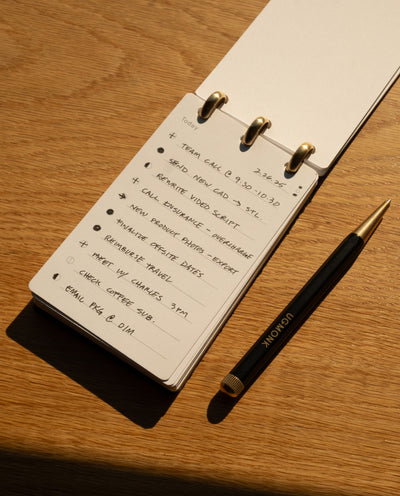 Today
2.26.25
TEAM CALL @ 9:30-10:30
SEND NEW CAD → STL
REWRITE VIDEO SCRIPT
CALL INSURANCE - OVERCHARGE
NEW PRODUCT PHOTOS - EXPORT
FINALIZE OFFSITE DATES
REIMBURSE TRAVEL
MEET W/ CHARLES 3PM
CHECK COFFEE SUB.
EMAIL PKG @ DIM
UGMONK